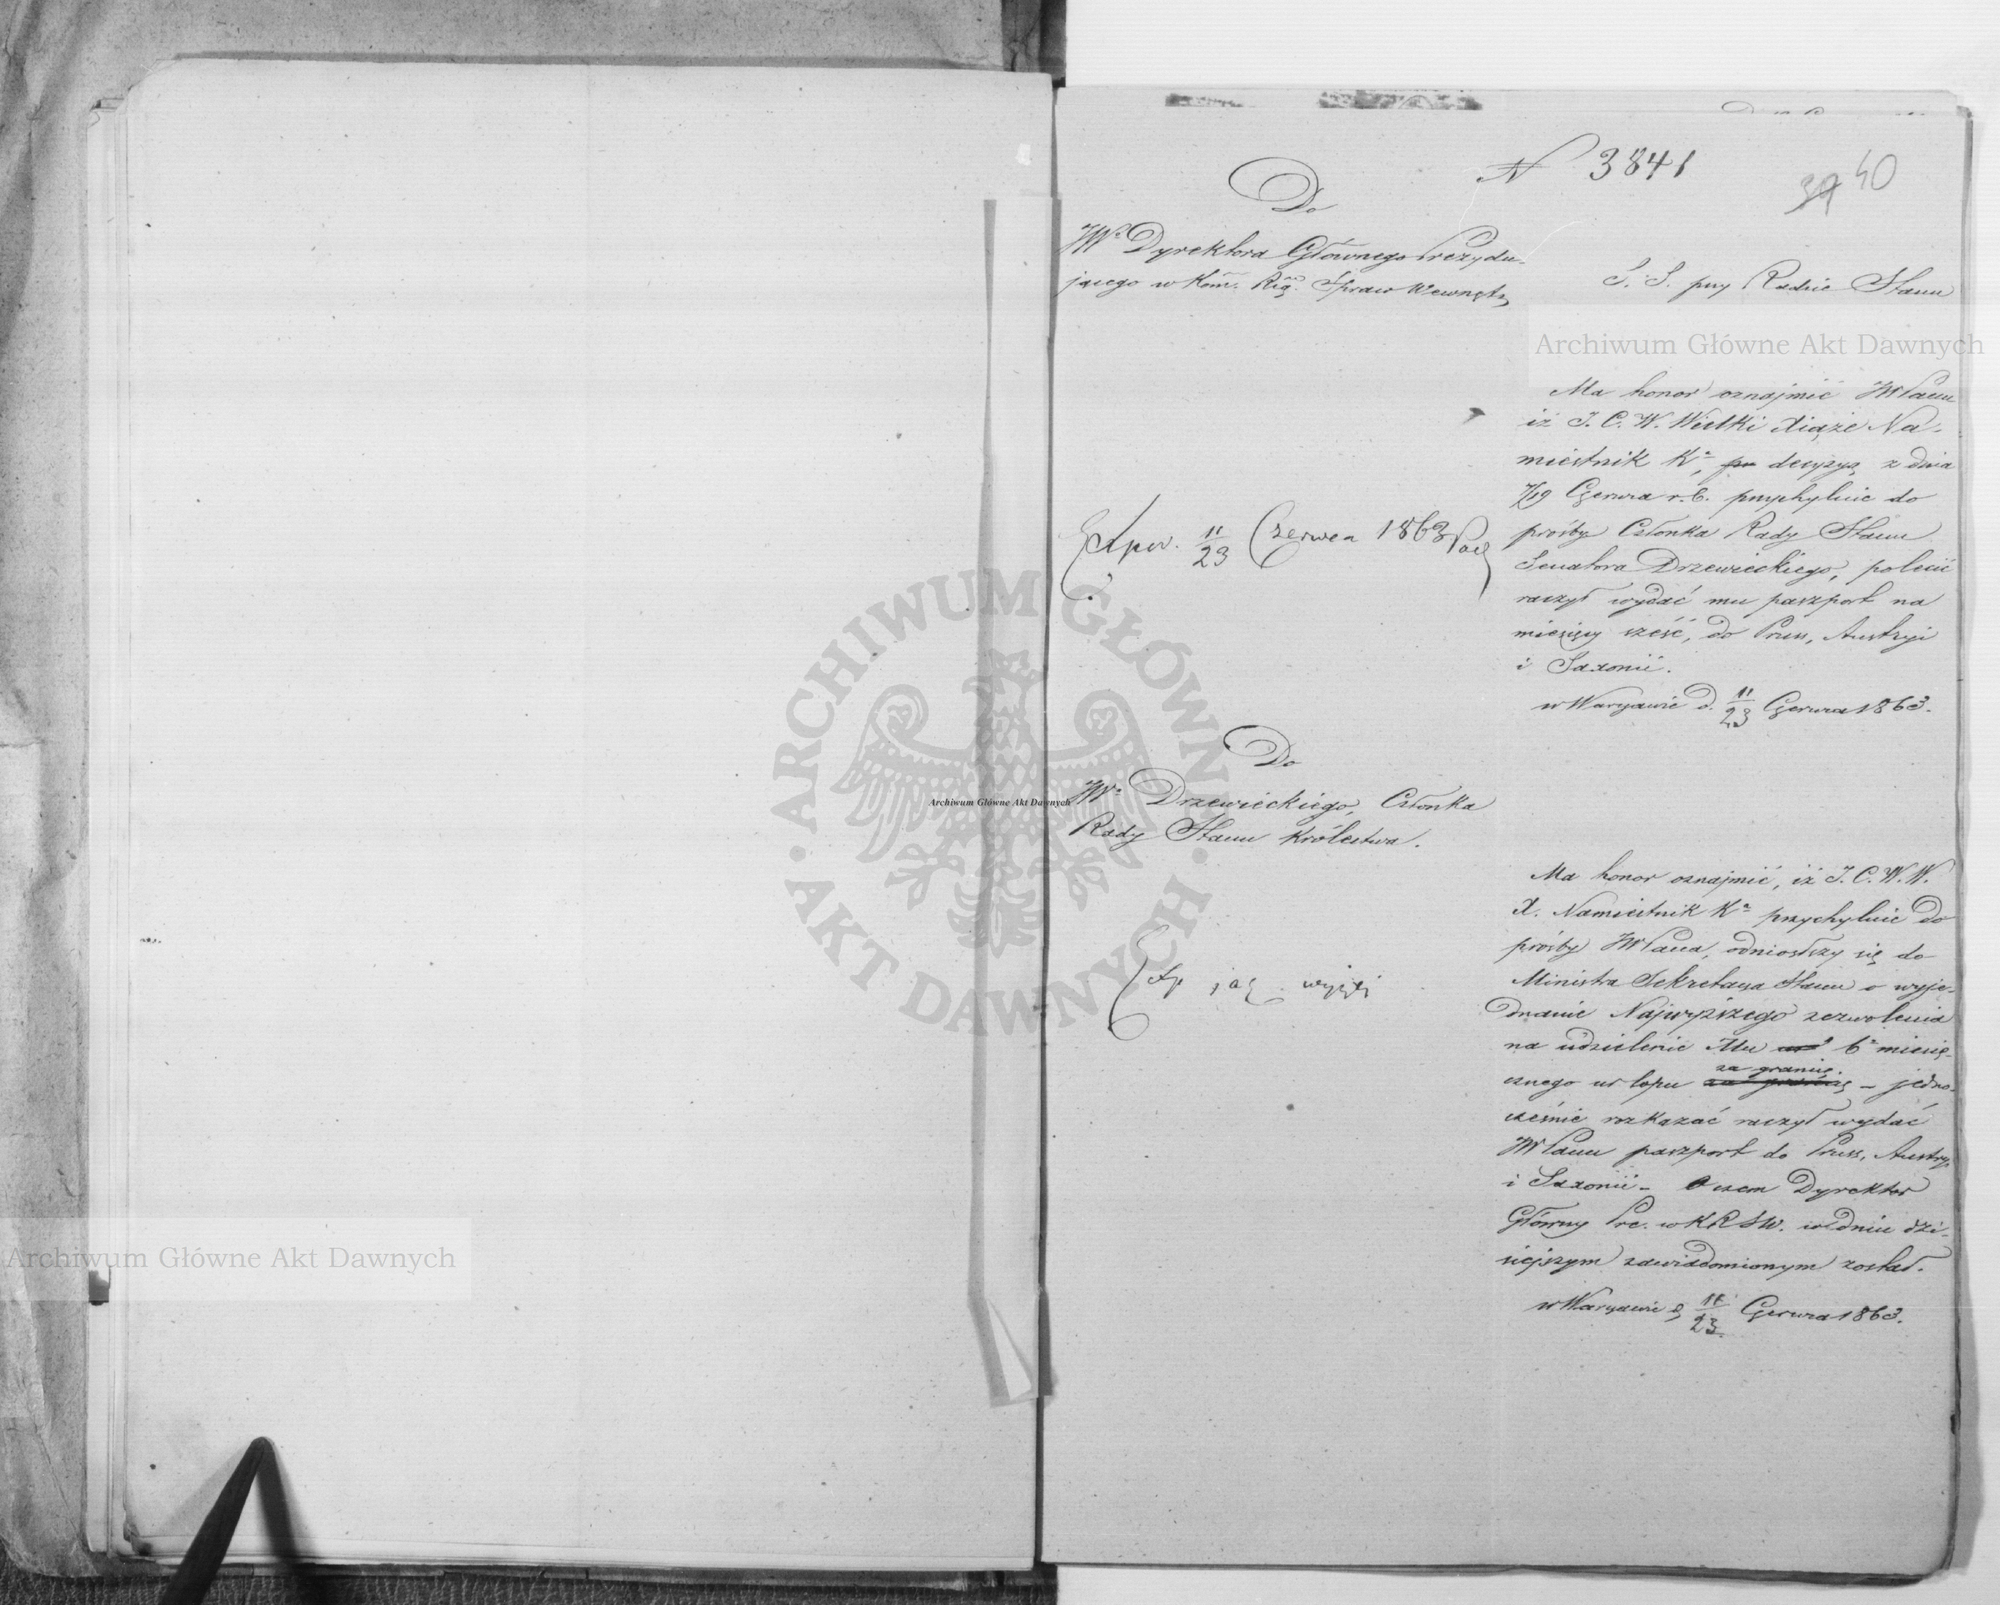 N 3841
39 40
Do
JWº Dyrektora Głównego Prezydu-
jącego w Kom. Rzą. Spraw Wewnętz
S. S. przy Radzie Stanu
Archiwum Główne Akt Dawnych
Ma honor oznajmić JWPanu
iż J. C. W. Wielki Xiąże Na-
miestnik Kª, decyzyą z dnia
7/19 Czerwca r.b. przychylnie do
prośby Członka Rady Stanu
Senatora Drzewieckiego, polecić
raczył wydać mu paszport na
miesięcy sześć, do Pruss, Austryi
i Saxonii.
w Warszawie d. 11/23 Czerwca 1863.
Exped. 11/23 Czerwca 1863
Do
JWº Drzewieckiego, Członka
Rady Stanu Królestwa.
Archiwum Główne Akt Dawnych
ARCHIWUM GŁÓWNE AKT DAWNYCH
Ma honor oznajmić, iż J. C. W. W.
X. Namiestnik Kª przychylnie do
prośby JWPana, odniosłszy się do
Ministra Sekretarza Stanu o wyje-
dnanie Najwyższego zezwolenia
na udzielenie Mu 6º miesię-
cznego urlopu za granicę – jedno-
cześnie rozkazać raczył wydać
JWPanu paszport do Pruss, Austryi
i Saxonii – O czem Dyrektor
Główny Pre. w K R S W. w dniu dzi-
siejszym zawiadomionym został.
w Warszawie d 11/23 Czerwca 1863.
Exp jak wyżej
Archiwum Główne Akt Dawnych